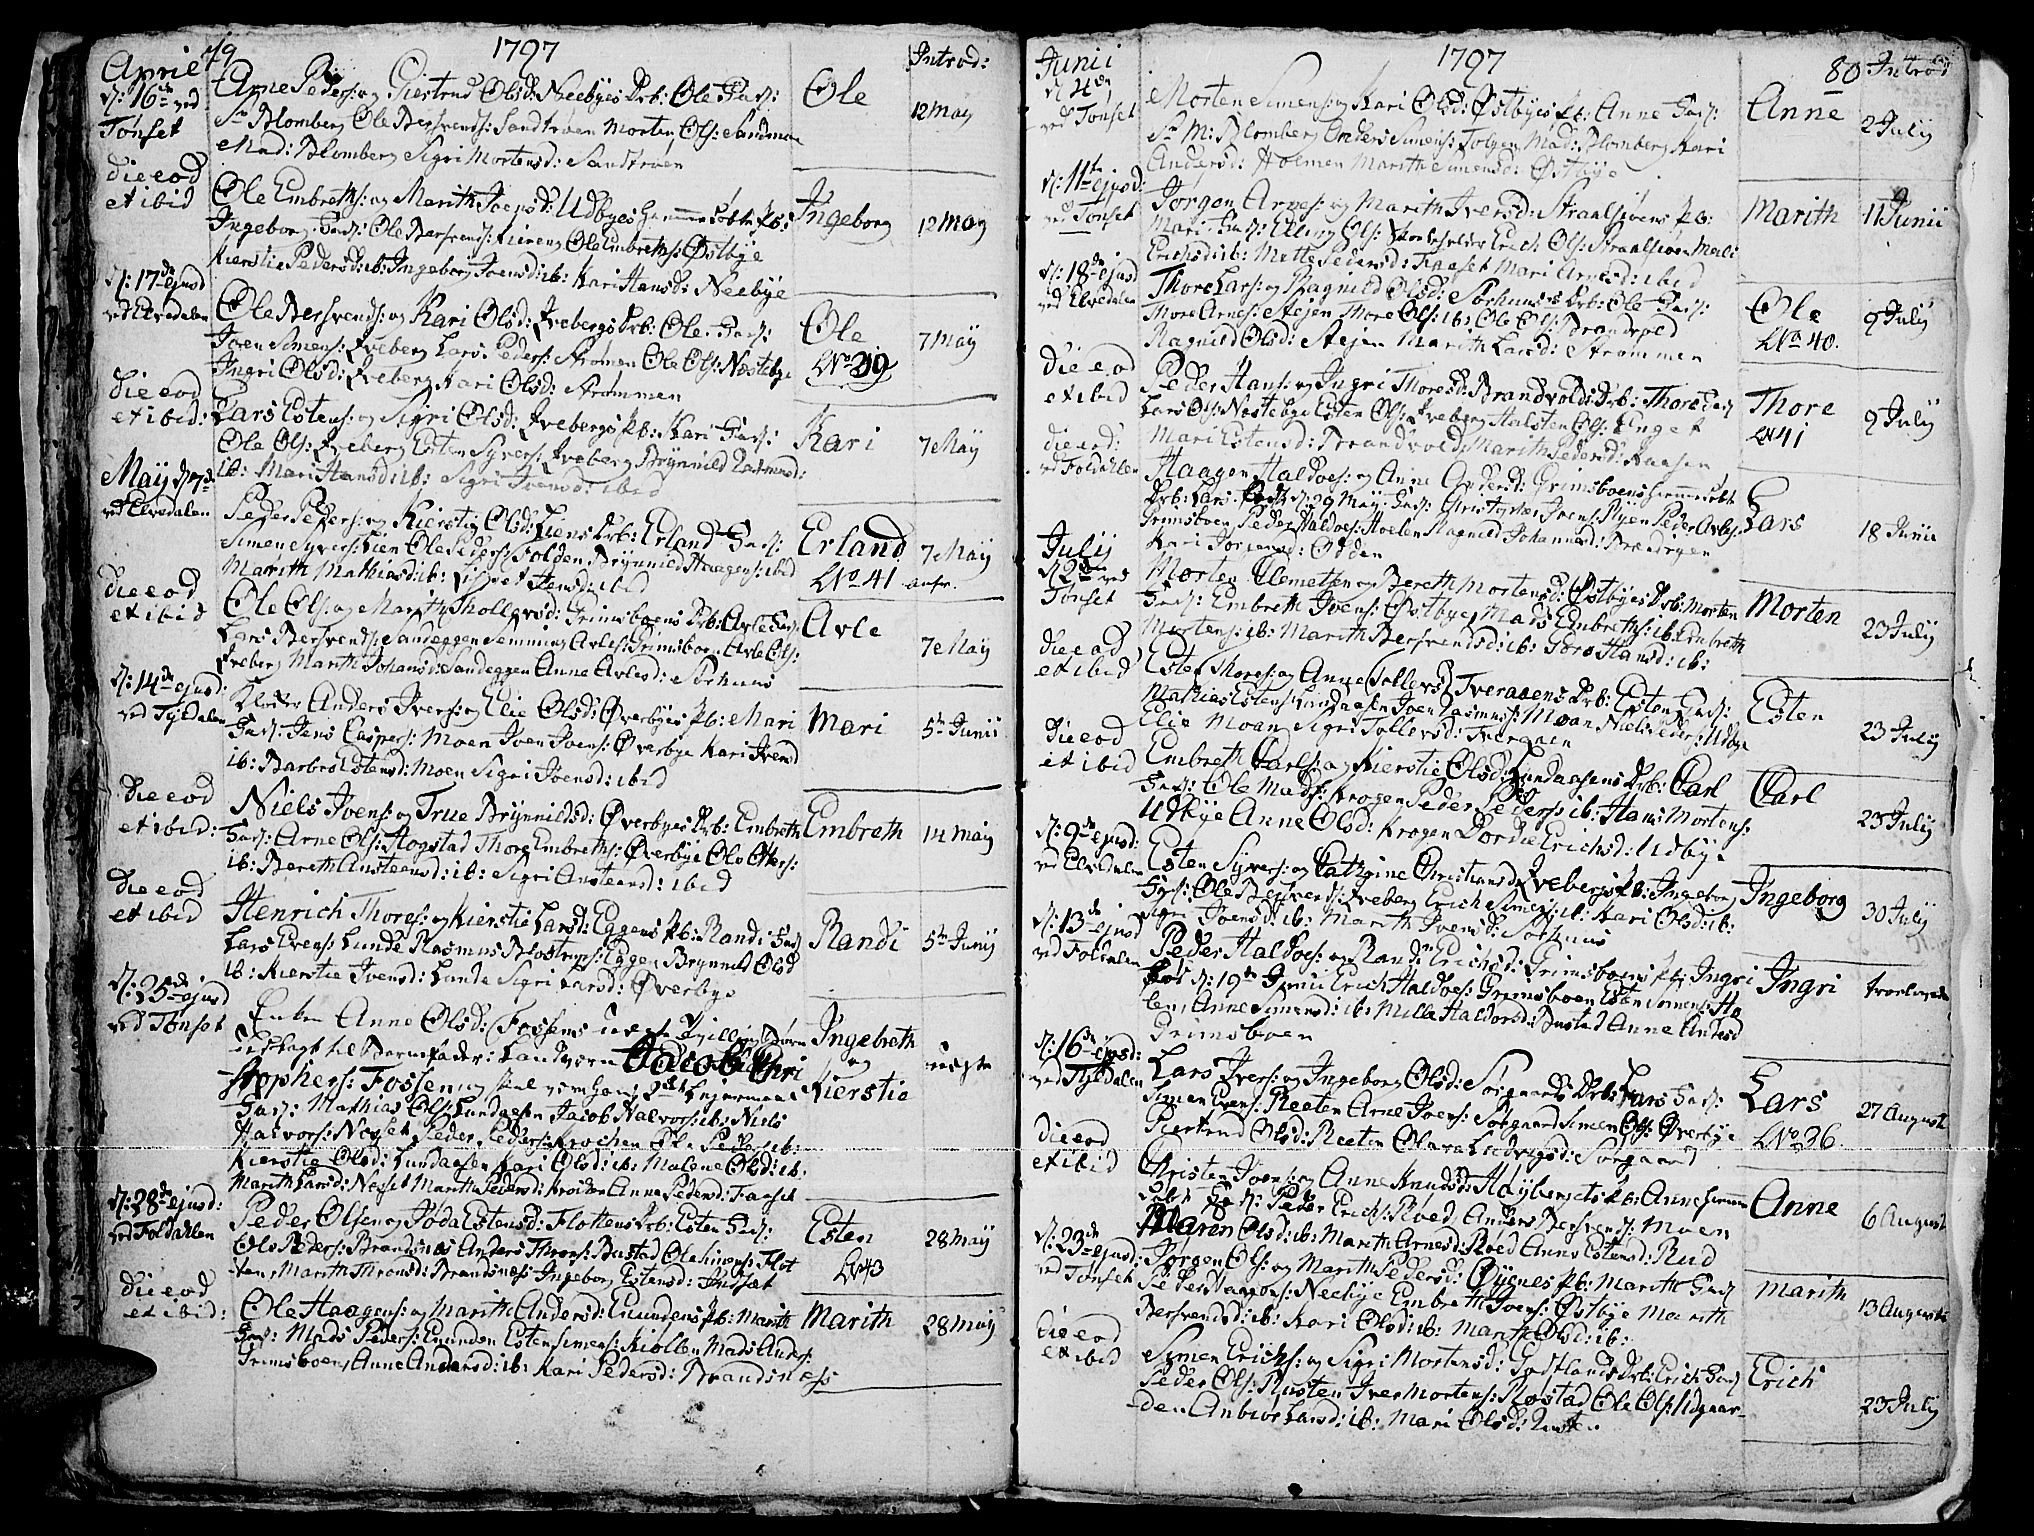 79
1797
Introd:
April
d: 16de ved
Tønset
Arne Peders: og Giertrud Olsd: Neebyes Drb: Ole Fad:
Sr Blomberg Ole Bersvends: Sandtrøen Morten Ols: Sandmoe
Mad: Blomberg Sigri Mortensd: Sandtrøen
Ole
12 May
die eod
et ibid
Ole Embreths: og Marith Joensd: Udbyes hiemmedøbte Pb:
Ingeborg Fad: Ole Bersvends: Ole Embreths: Østbye
Kierstie Pedersd: ib: Ingeborg Joensd: ib: Kari Hansd: Neebye
Ingeborg
12 May
d: 17de ejusd
ved Elvedalen
Ole Bersvends: og Kari Olsd: Qvebergs Drb: Ole Fad:
Joen Simens: Qveberg Lars Peders: Strømen Ole Ols: Næstebye
Ingri Olsd: Qveberg Kari Olsd: Strømmen
Ole
No 39
7 May
die eod
et ibid:
Lars Estens: og Sigri Olsd: Qvebergs Pb: Kari Fad:
Ole Ols: Qveberg Esten Syvers: Qveberg Brynnild Rasmusd:
ib: Mari Hansd: ib: Sigri Ivensd: ibid
Kari
7 May
May d 7de
ved Elvedalen
Peder Peders: og Kierstie Olsd: Liens Drb: Erland Fad:
Simen Syvers: Lien Ole Peders: Folden Brynnild Haagens: ibid
Marith Mathiasd: ib: Lisbet Hensd: ibid
Erland
No 41
7 May
die eod
et ibid
Ole Ols: og Marith Thollevsd: Grimsboens Drb: Avle Fad:
Lars Bersvends: Sandeggen Semming Avles: Grimsboen Avle Ols:
Qveberg Marith Johansd: Sandeggen Anne Avlesd: Sørhuus
Avle
7 May
d: 14de ejusd:
ved Tyldalen
Anders Ivers: og Elie Olsd: Øverbyes Pb: Mari
Fad: Jens Caspers: Moen Joen Joens: Øverbye Kari Ivensd
ib: Barbro Estensd: Moen Sigri Joensd: ibid
Mari
5te Junii
die eod
et ibid:
Niels Joens: og True Brynnildsd: Øverbyes Drb: Embreth
Fad: Arne Ols: Hogstad Thore Embreths: Øverbye Ole Otters:
ib: Bereth Ansteensd: ib: Sigri Ansteensd: ibid
Embreth
14 May
die eod
et ibid
Henrich Thores: og Kierstie Larsd: Eggens Pb: Randi Fad
Lars Evens: Lunde Rasmus Eggen Brynnild Olsd
ib: Kierstie Ivensd: Lunde Sigri Larsd: Øverbye
Randi
5te Junij
d: 25de ejusd
ved Tønset
Anne Olsd: Fossens uegte Tvilling Børn
udlagt til Barnefader: Landværn Jacob Chri
stophers: Fossen og skal være hans 2det Leiermaal
Fad: Mathias Ols: Lundaasen Jacob Halvors: ib: Niels
Halvors: Neset Peder Peders: Krochen Ole Peders: ib:
Kierstie Olsd: Lundaasen Kari Olsd: ib: Malene Olsd: ib:
Marith Larsd: Neset Marith Pedersd: Kroken Anne Pedersd: Faaset
Ingebreth
og
Kierstie
uegte
d: 28de ejusd:
ved Foldahlen
Peder Olsen og Jøda Estensd: Flottens Drb: Esten Fad:
Ole Peders: Brandsnes Anders Throns: Bustad Ole Sivers: Flot
ten, Marith Thronsd: Brandsness Ingeborg Estensd: Jusset
Esten
No 43
28 May
die eod
et ibid:
Ole Haagens: og Marith Andersd: Enundens Pb: Marith
Fad: Mads Peders: Enunden Esten Simens: Kiøllen Mads Anders:
Grimsboen Anne Andersd: ib: Kari Pedersd: Brandsness
Marith
28 May
1797
80
Introd
Junii
d 4de
ved Tønset
Morten Simens: og Kari Olsd: Østbyes Pb: Anne Fad:
Sr M: Blomberg Anders Simens: Tolgen Mad: Blomberg Kari
Andersd: Holmen Marith Simensd: Østbye
Anne
2 Julij
d: 11te ejusd:
ved Tønset
Jørgen Arnes: og Marith Iversd: Straalsjøens Pb:
Mari Fad: Elling Ols: Erich Ols: Straalsjøen Mali
Erichsd: ib: Mette Pedersd: Faaset Mari Arnesd: ibid
Marith
11 Junii
d: 18de ejusd
ved Elvedalen
Thore Lars: og Ragnild Olsd: Sørhuuses Drb: Ole Fad:
Thore Arnes: Stejen Thore Ols: ib: Ole Ols: Brandvold
Ragnild Olsd: Stejen Marith Larsd: Strømmen
Ole
No 40.
9 Julij
die eod
et ibid
Peder Hans: og Ingri Thoresd: Brandvolds Drb: Thore Fad
Lars Ols: Næstebye Esten Ols: Qveberg Halsten Ols: Enget
Mari Estensd: Brandvold Marith Pedersd: Aasen
Thore
No 41
9 Julij
die eod:
ved Foldahlen
Haagen Haldoes: og Anne Andersd: Grimsboens hiemmedøbte
Drb: Lars d: 29 May: Fad: Peder Avles:
Grimsboen Peder Haldoes: Hoelen Magnild Johannesd: Brændryen
Kari Jørgensd: Odden
Lars
18 Junii
July
d 2den ved
Tønset
Morten Clemetsen og Bereth Mortensd: Østbyes Drb: Morten
Fad: Embreth Ivens: Østbye Mads Embreths: ib: Embreth
Mortens: ib: Marith Bersvendsd: ib: Gøro Hansd: ib:
Morten
23 Julij
die eod
et ibid
Esten Thores: og Anne Tollevsd: Tveraaens Drb: Esten Fad:
Mathias Estens: Lundaasen Joen Rasmus: Moan Niels Peders: Udbye
Elie Moan Sigri Tollevsd: Tveraaen
Esten
23 Julij
die eod
et ibid
Embreth Carls: og Kierstie Olsd: Lundaasens Drb: Carl
Fad: Ole Mads: Krogen Peder Peders: ib: Hans Mortens:
Udbye Anne Olsd: Krogen Dordie Erichsd: Udbye
Carl
23 Julij
d: 9de ejusd:
ved Elvedalen
Esten Syvers: og Cathrine Christiansd: Qvebergs Pb: Ingeborg
Fad: Ole Bersvends: Qveberg Erich Simens: ib: Kari Olsd: ib:
Sigri Joensd: ib: Marith Ivensd: Sørhuus
Ingeborg
30 Julij
d: 13de ejusd
ved Foldalen
Peder Haldoes: og Randi Erichsd: Grimsboens Pb: Ingri
Fød d: 19de Junii Erich Haldoes: Grimsboen Esten Simens: Ho
len, Anne Simensd: ib: Mille Haldorsd: Bustad Anne Andersd
Grimsboen
Ingri
d: 16de ejusd:
ved Tyldalen
Lars Ivers: og Ingeborg Olsd: Sørgaards Drb: Lars Fad:
Simen Evens: Reeten Arne Ivens: Sørgaard Simen Ols: Øverbye
Giertrud Olsd: Reeten Olava Ludvigsd: Sørgaard
Lars
No 36.
27 August
die eod
et ibid
Christen Joens: og Anne Knudsd: Høybergets Pb: Anne hiemme
døbt Fad: Peder Erichs: Roed Anders Bersvends: Moen
Maren Olsd: ib: Marith Arnesd: Røed Anne Estensd: Rud
Anne
6 August
d: 23de
ejusd:
ved Tønset
Jørgen Ols: og Marith Pedersd: Øygnes Pb: Marith Fad
Peder Haagens: Neebye Embreth Ivens: Østbye Marith
Bersvendsd: ib: Kari Olsd: ib: Marith Olsd: ib:
Marith
13 Augusti
die eod
et ibid
Simen Erichs: og Sigri Mortensd: Godtlands Drb: Erich Fad
Peder Ols: Rusten Iver Mortens: Rostad Ole Ols: Udgaar-
den Anbiør Larsd: ib: Mari Olsd: Rusten
Erich
23 Julij